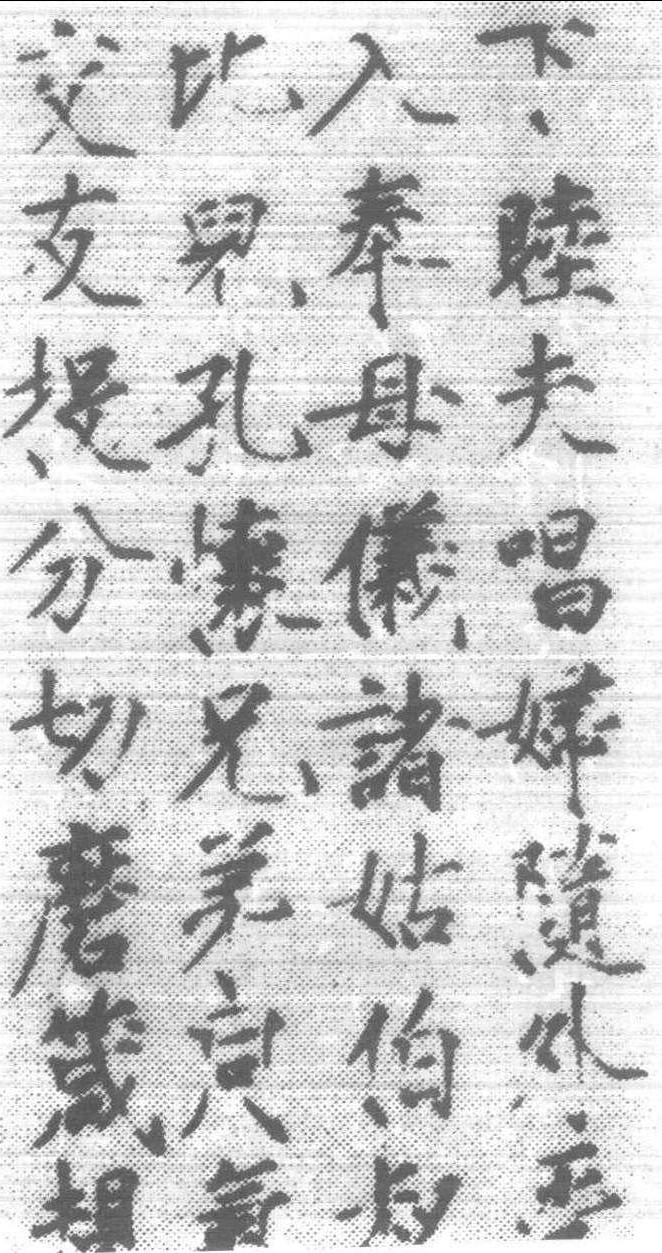 下睦夫唱婦隨外
入奉母儀諸姑伯叔
比兒孔懷兄弟同氣
交友投分切磨箴